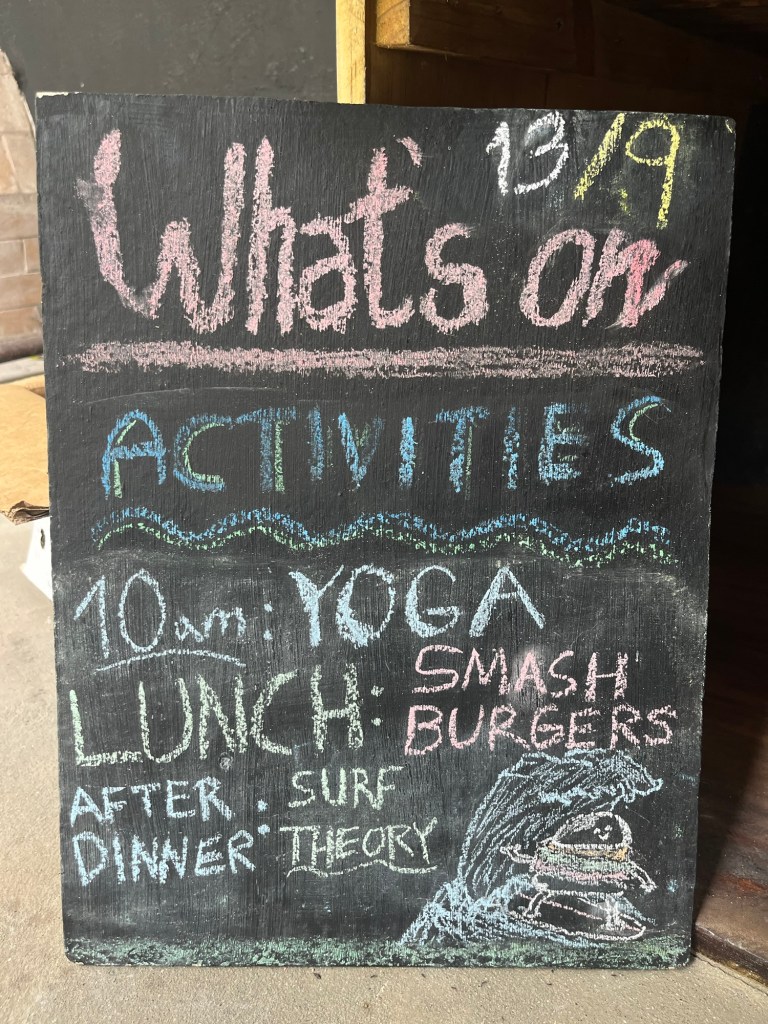 13/9
What's on
ACTIVITIES
10am: YOGA
LUNCH: SMASH
BURGERS
AFTER : SURF
DINNER THEORY